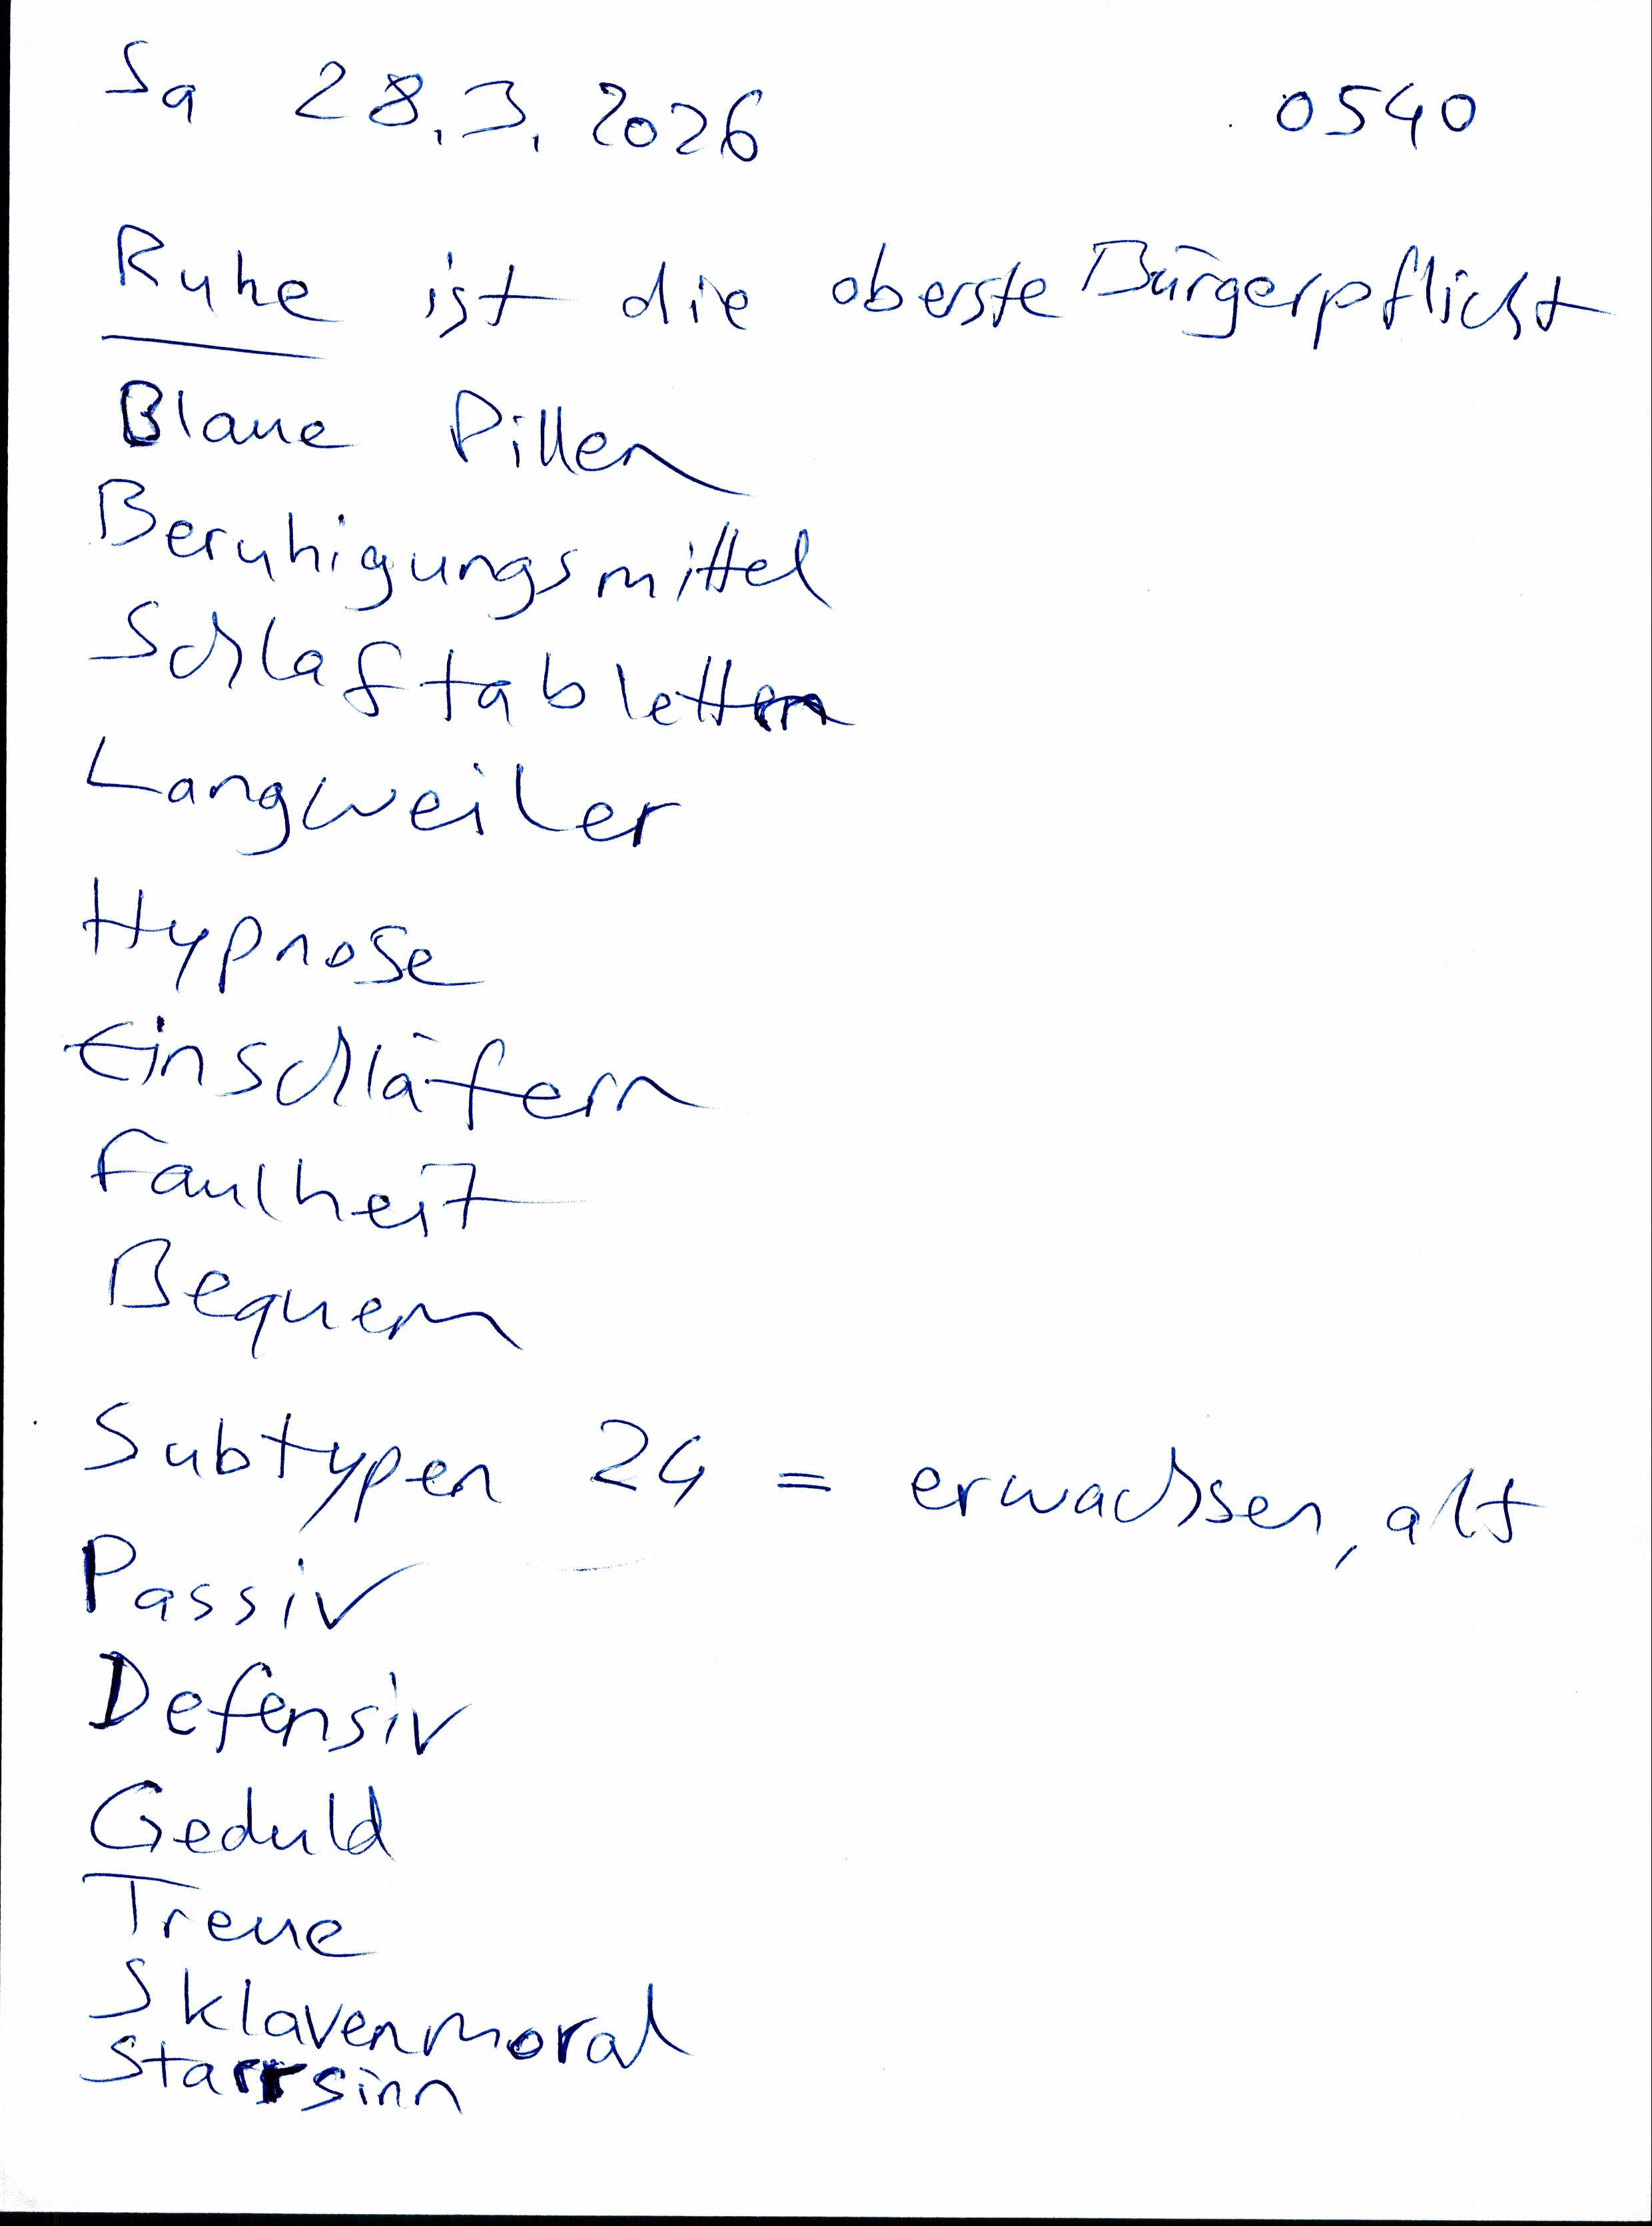 Sa 28.3.2026 0540
Ruhe ist die oberste Bürgerpflicht
Blaue Pillen
Beruhigungsmittel
Schlaftabletten
Langweiler
Hypnose
Einschläfern
Faulheit
Bequem
Subtypen 24 = erwachsen, alt
Passiv
Defensiv
Geduld
Treue
Sklavenmoral
Starrsinn